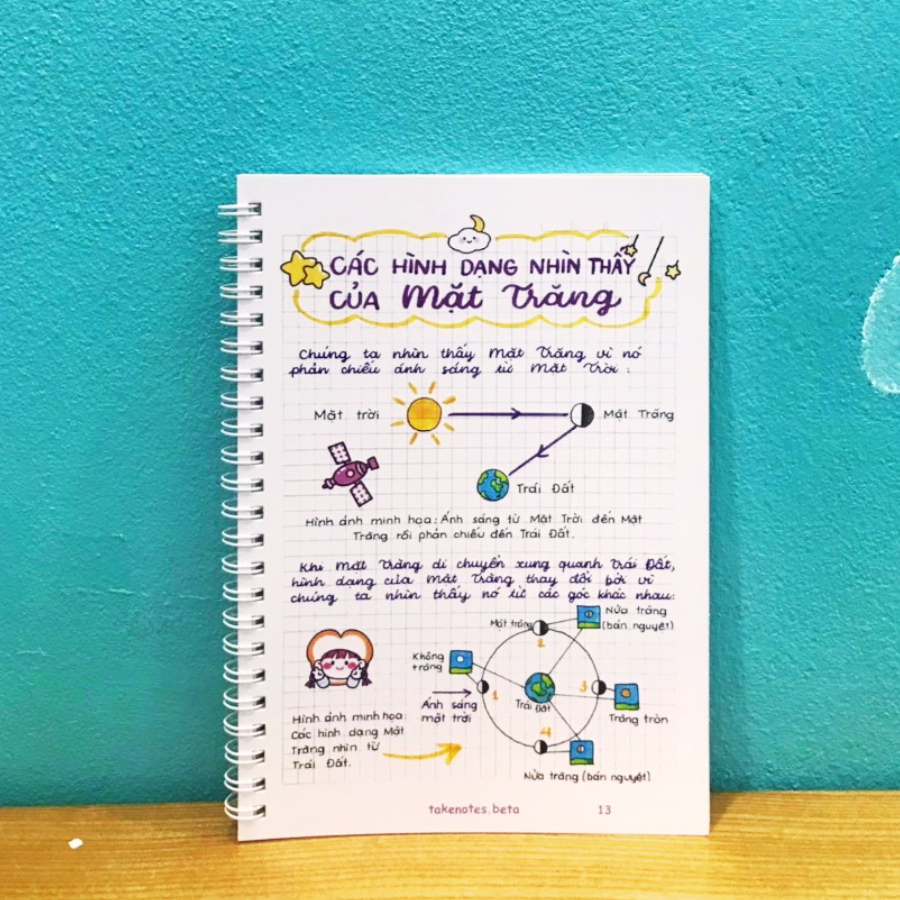 CÁC HÌNH DẠNG NHÌN THẤY
CỦA Mặt Trăng
Chúng ta nhìn thấy Mặt Trăng vì nó
phản chiếu ánh sáng từ Mặt Trời:
Mặt trời
Mặt Trăng
Trái Đất
Hình ảnh minh họa: Ánh sáng từ Mặt Trời đến Mặt
Trăng rồi phản chiếu đến Trái Đất.
Khi Mặt Trăng di chuyển xung quanh Trái Đất,
hình dạng của Mặt Trăng thay đổi bởi vì
chúng ta nhìn thấy nó từ các góc khác nhau:
Nửa trăng
(bán nguyệt)
Mặt trăng
2
Không
trăng
1
3
Trái Đất
Ánh sáng
mặt trời
Trăng tròn
4
Hình ảnh minh họa:
Các hình dạng Mặt
Trăng nhìn từ
Trái Đất.
Nửa trăng (bán nguyệt)
takenotes.beta 13